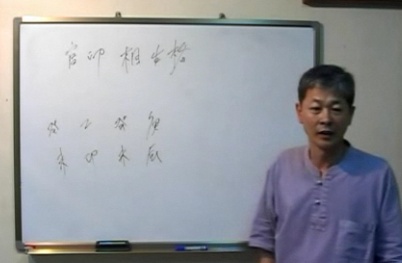 官印相生格
癸乙癸庚
未卯未辰